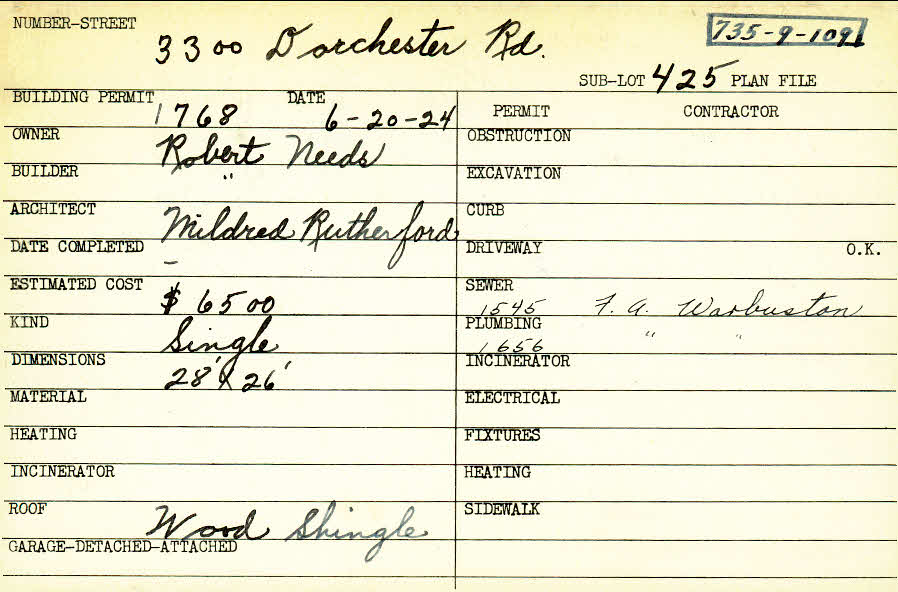 NUMBER-STREET
3300 Dorchester Rd.
735-9-109
SUB-LOT 425 PLAN FILE
BUILDING PERMIT 1768 DATE 6-20-24
PERMIT CONTRACTOR
OWNER Robert Needs
OBSTRUCTION
BUILDER "
EXCAVATION
ARCHITECT Mildred Rutherford
CURB
DATE COMPLETED -
DRIVEWAY O.K.
ESTIMATED COST $6500
SEWER 1545 F. A. Warbuston
KIND Single
PLUMBING 1656 " "
DIMENSIONS 28' X 26'
INCINERATOR
MATERIAL
ELECTRICAL
HEATING
FIXTURES
INCINERATOR
HEATING
ROOF Wood Shingle
SIDEWALK
GARAGE-DETACHED-ATTACHED